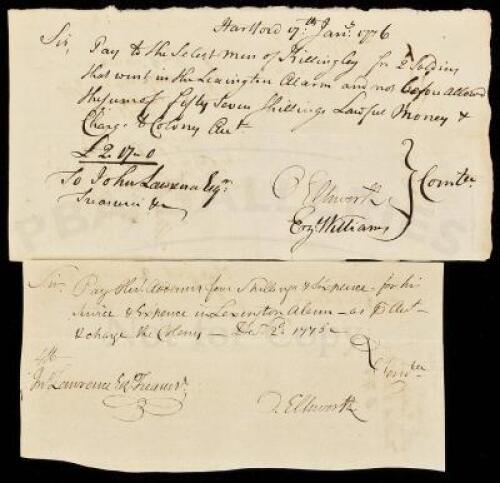 Hartford 17th Jany 1776
Sir,
Pay to the Select men of Killingley for 2 Soldiers
that went in the Lexington Alarm and not before allowed
the sum of fifty Seven Shillings Lawful Money &
Charge ye Colony Acct
£2. 17 - 0
To John Lawrence Esqr
Treasurer &c
O Ellsworth
Ezl Williams
} Comtee
Sir. Pay four Shillings & Sixpence for his
Service & Expence in Lexington Alarm - as Pr Acct -
& charge the Colony - Decr 2d 1775 -
4/6
Jno Lawrence Esq Treasurr
Comtee
O. Ellsworth